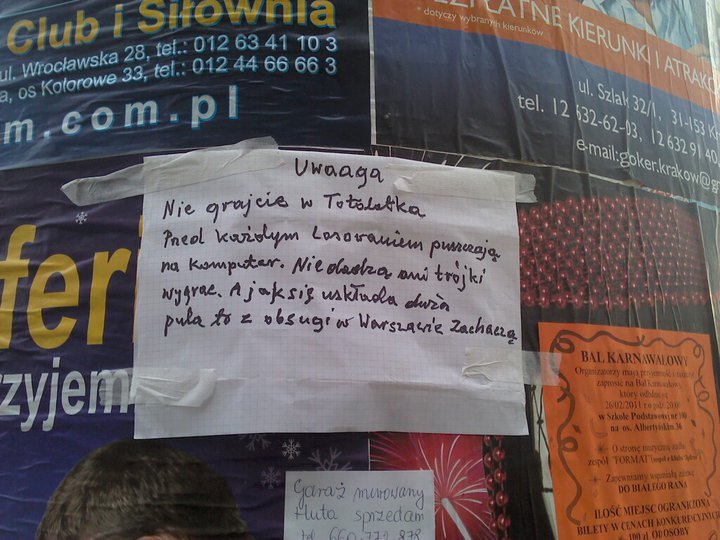 Club i Siłownia
ul. Wrocławska 28, tel.: 012 63 41 10 3
a, os Kolorowe 33, tel.: 012 44 66 66 3
m.com.pl
ZPŁATNE KIERUNKI I ATRAKC
* dotyczy wybranych kierunków
ul. Szlak 32/1, 31-153 K
tel. 12 632-62-03, 12 632 91 40
e-mail:goker.krakow@g
Uwaaga
Nie grajcie w Totolotka
Pred każdym Losowaniem puszczają
na komputer. Nie dadzą ani trójki
wygrac. A jak się uskłada duża
pula to z obsugi w Warszawie Zachaczą
feri
zyjem
BAL KARNAWAŁOWY
Organizatorzy mają przyjemność i zaszczyt
zaprosić na Bal Karnawałowy
który odbędzie się
26/02/2011 r o godz 20.00
w Szkole Podstawowej nr 100
na os. Albertyńskim 36
O stronę muzyczną zadba
zespół "FORMAT"
Zapewniamy wspaniałą zabawę
DO BIAŁEGO RANA
ILOŚĆ MIEJSC OGRANICZONA
BILETY W CENACH KONKURENCYJNYCH
100 zł OD OSOBY
Garaż murowany
Huta sprzedam
tel. 660 772 878